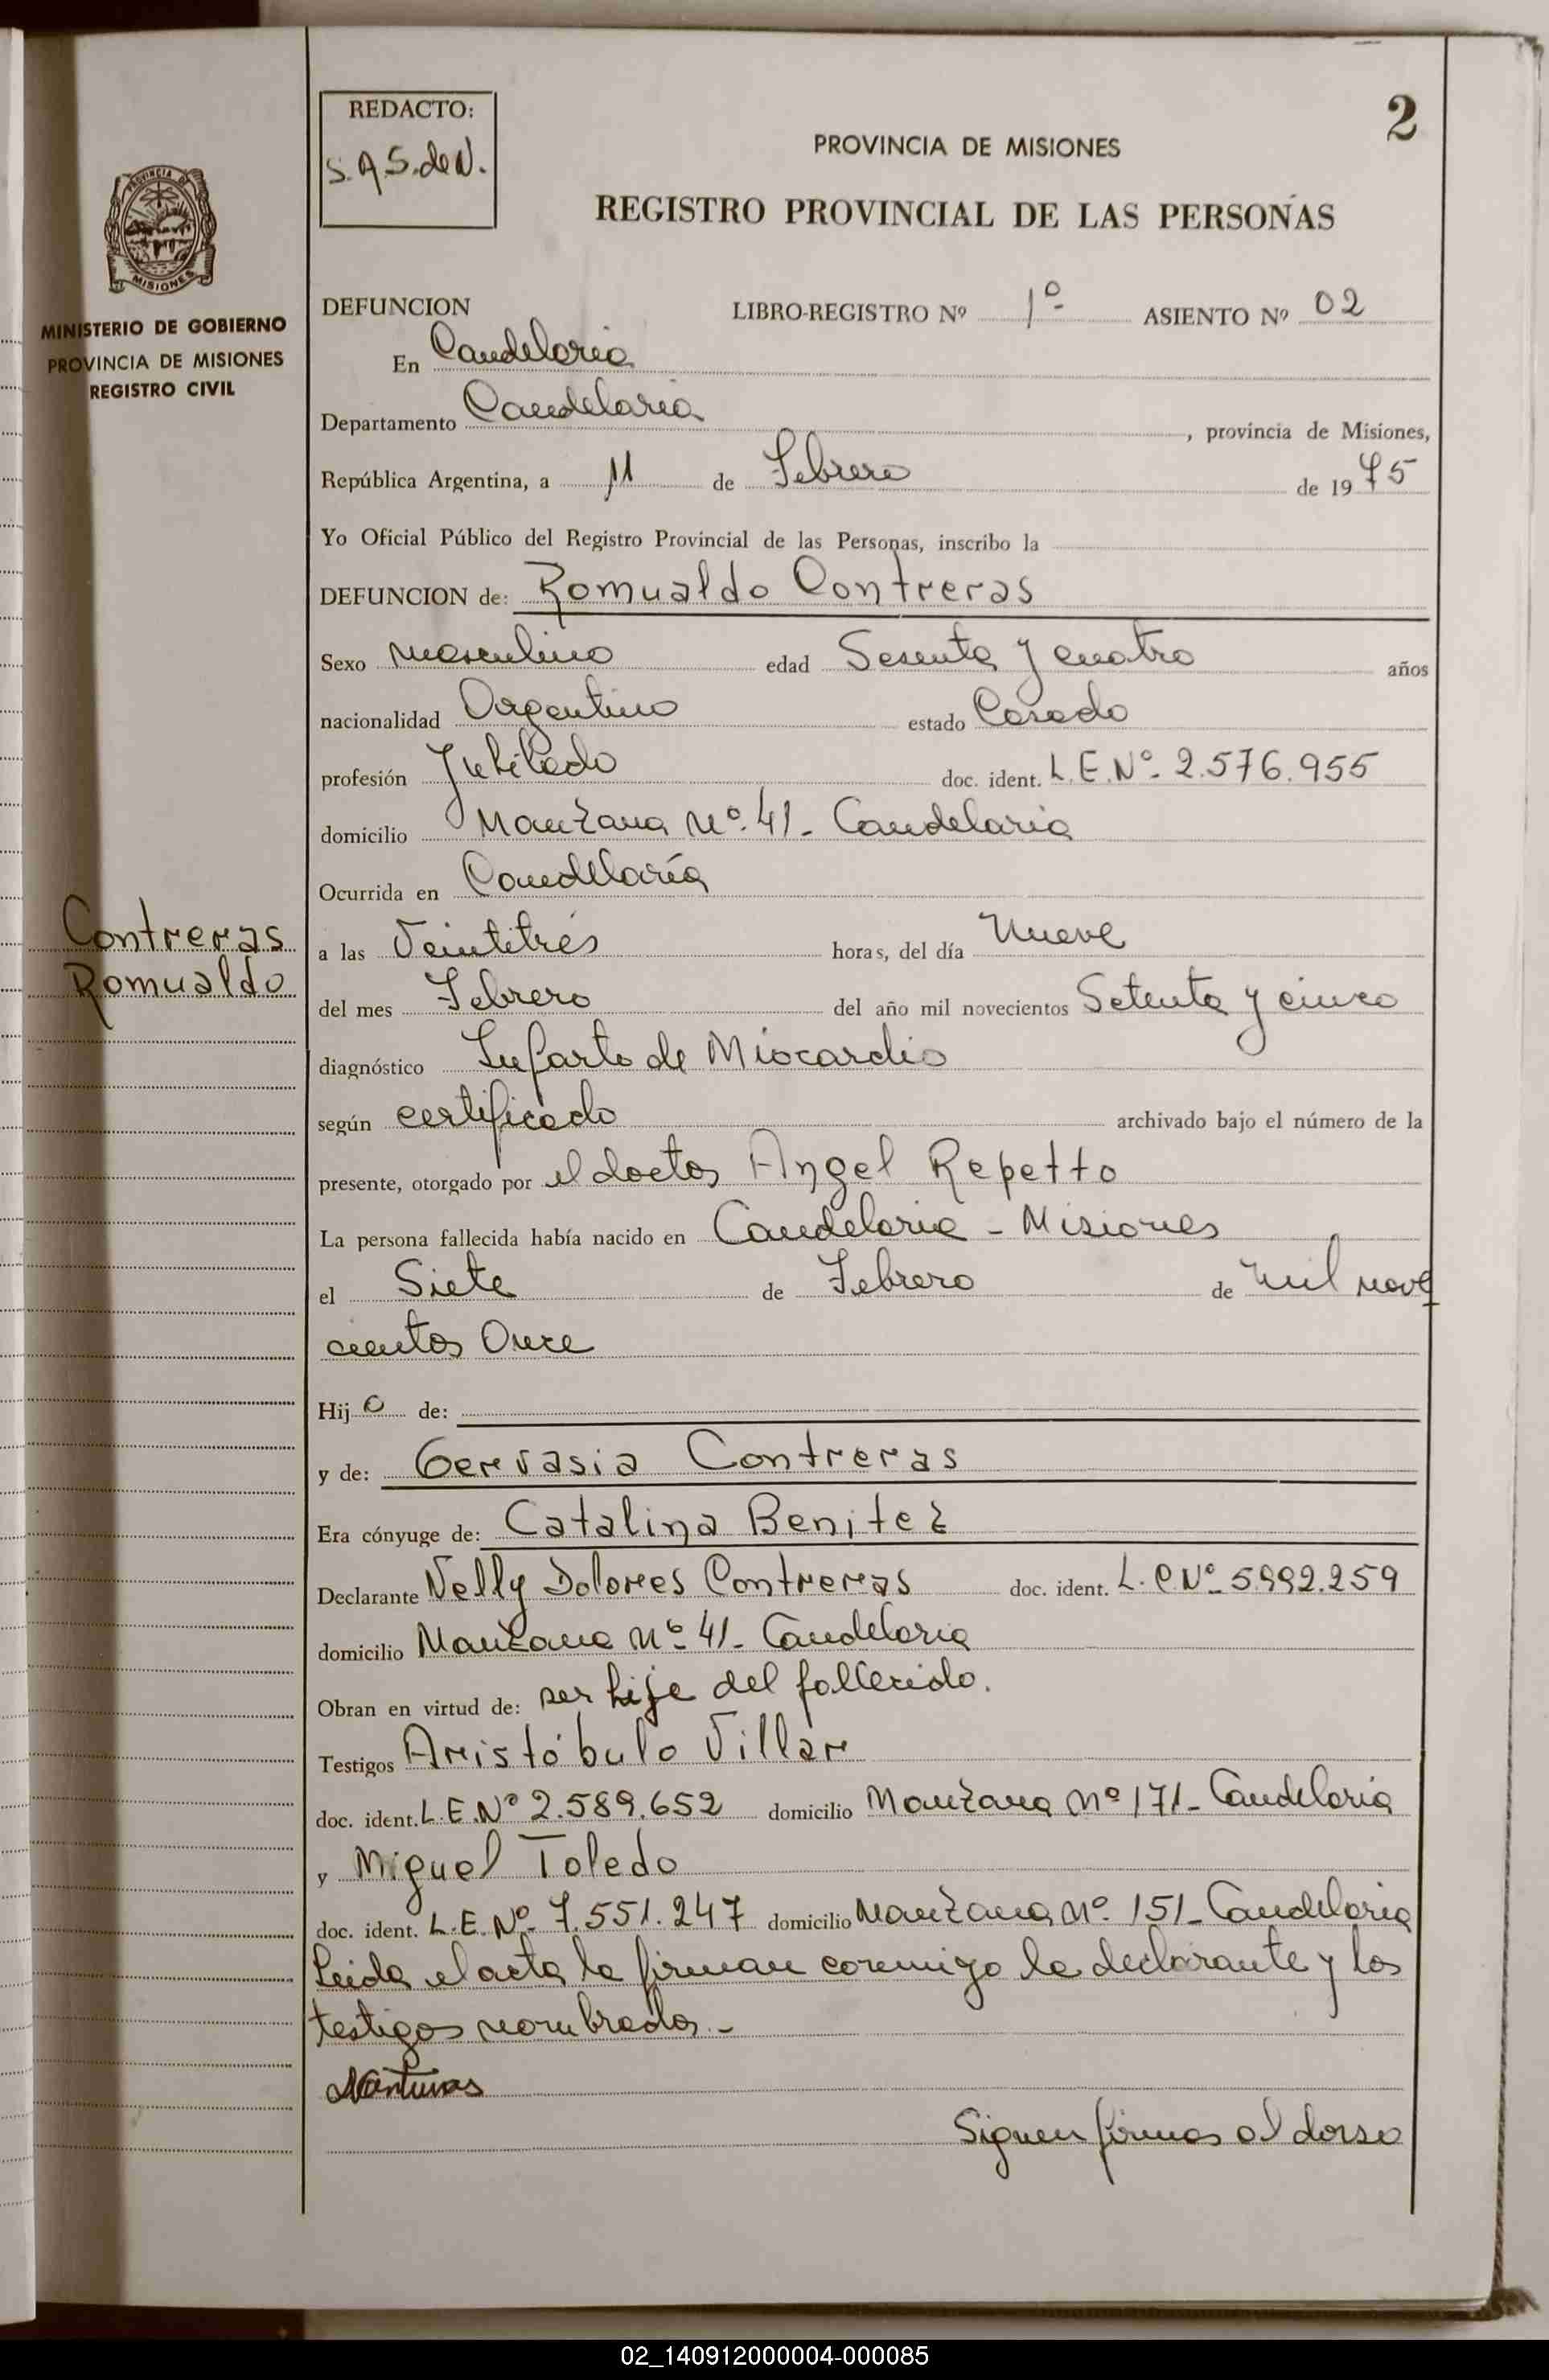 2
REDACTO:
S.A.S.de N.
PROVINCIA DE MISIONES
REGISTRO PROVINCIAL DE LAS PERSONAS
PROVINCIA DE
MISIONES
MINISTERIO DE GOBIERNO
PROVINCIA DE MISIONES
REGISTRO CIVIL
DEFUNCION LIBRO-REGISTRO Nº 1º ASIENTO Nº 02
En Candelaria
Departamento Candelaria, provincia de Misiones,
República Argentina, a 11 de Febrero de 1975
Yo Oficial Público del Registro Provincial de las Personas, inscribo la
DEFUNCION de: Romualdo Contreras
Sexo masculino edad Sesenta y cuatro años
nacionalidad Argentino estado Casado
profesión Jubilado doc. ident. L.E.Nº. 2.576.955
domicilio Manzana Nº. 41- Candelaria
Ocurrida en Candelaría
Contreras
Romualdo
a las Veintitrés horas, del día Nueve
del mes Febrero del año mil novecientos Setenta y cinco
diagnóstico Infarto de Miocardio
según certificado archivado bajo el número de la
presente, otorgado por el doctor Angel Repetto
La persona fallecida había nacido en Candelaria - Misiones
el Siete de Febrero de mil nove
cientos Once
Hijo de:
y de: Gervasia Contreras
Era cónyuge de: Catalina Benitez
Declarante Nelly Dolores Contreras doc. ident. L.C.Nº 5.992.259
domicilio Manzana Nº 41- Candelaria
Obran en virtud de: ser hija del fallecido.
Testigos Aristóbulo Villar
doc. ident. L.E.Nº 2.589.652 domicilio Manzana Nº 171- Candelaria
y Miguel Toledo
doc. ident. L.E.Nº. 7.551.247 domicilio Manzana Nº. 151- Candelaria
Leida el acta la firman conmigo la declarante y los
testigos nombrados.-
Siguen firmas al dorso
02_140912000004-000085